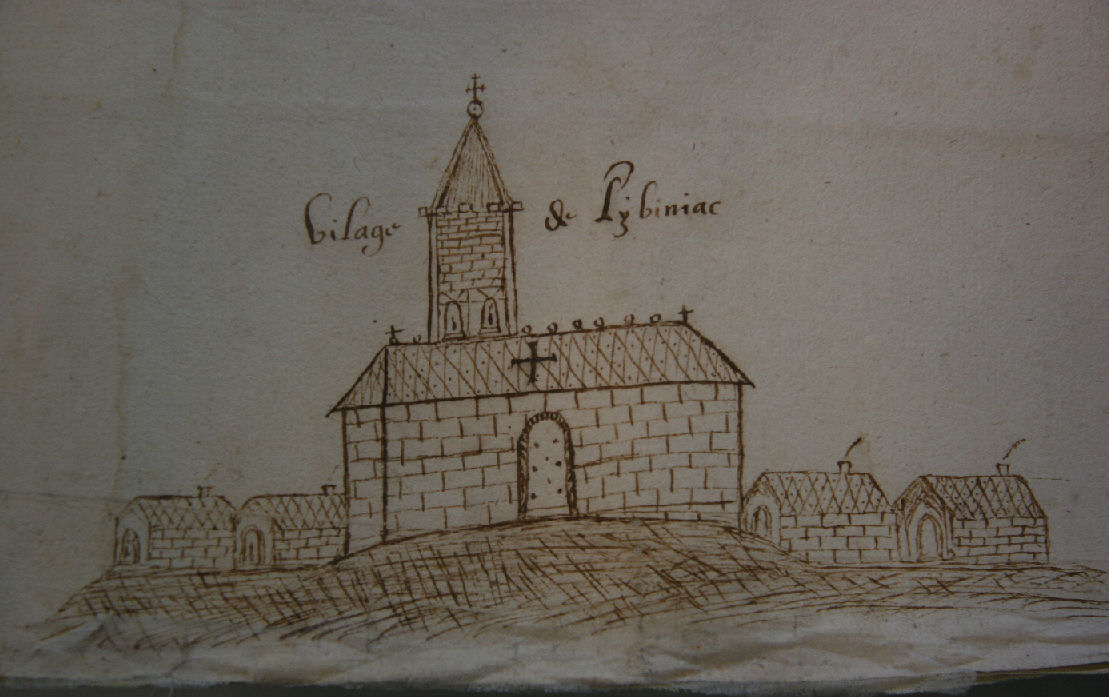 Vilage de Pÿbiniac